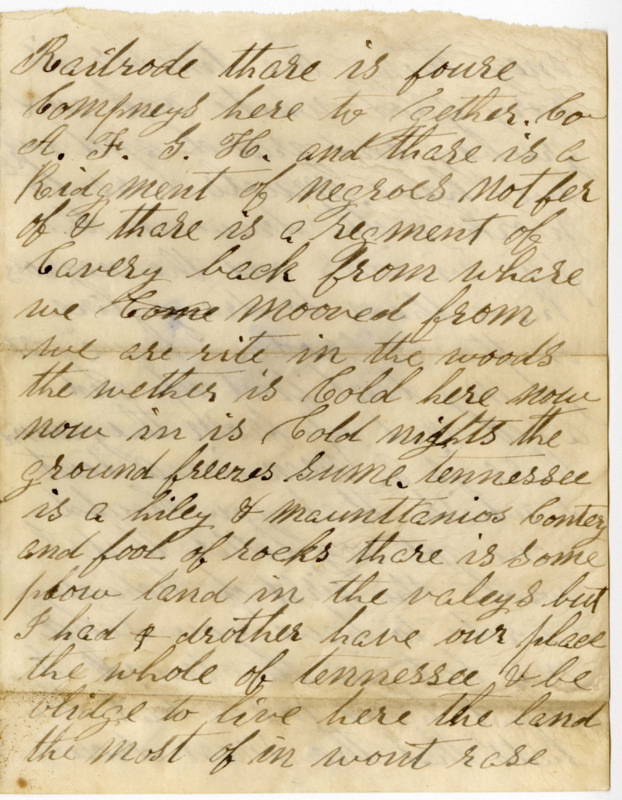 Railrode thare is foure
Compneys here to gether. Co
A. F. G. H. and thare is a
Ridgment of negroes not fer
of & thare is a regment of
Cavery back from whare
we Come mooved from
we are rite in the woods
the wether is Cold here now
now in is Cold nights the
ground freezes sume. tennessee
is a hiley & maunttanios Contery
and fool of rocks thare is some
plow land in the valeys but
I had & drother have our place
the whole of tennessee & be
blidge to live here the land
the most of in wont rase